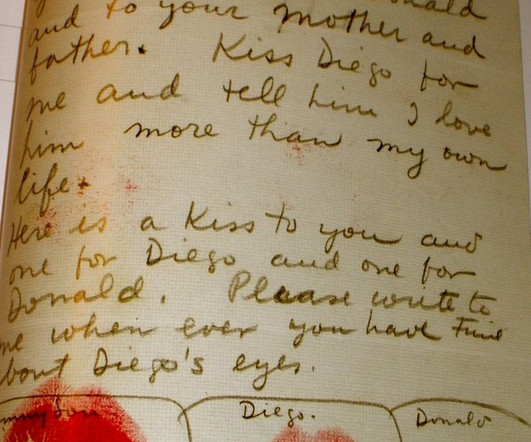 Donald
and to your mother and
father. Kiss Diego for
me and tell him I love
him more than my own
life.
Here is a Kiss to you and
one for Diego and one for
Donald. Please write to
me when ever you have time
about Diego's eyes.
Diego. Donald